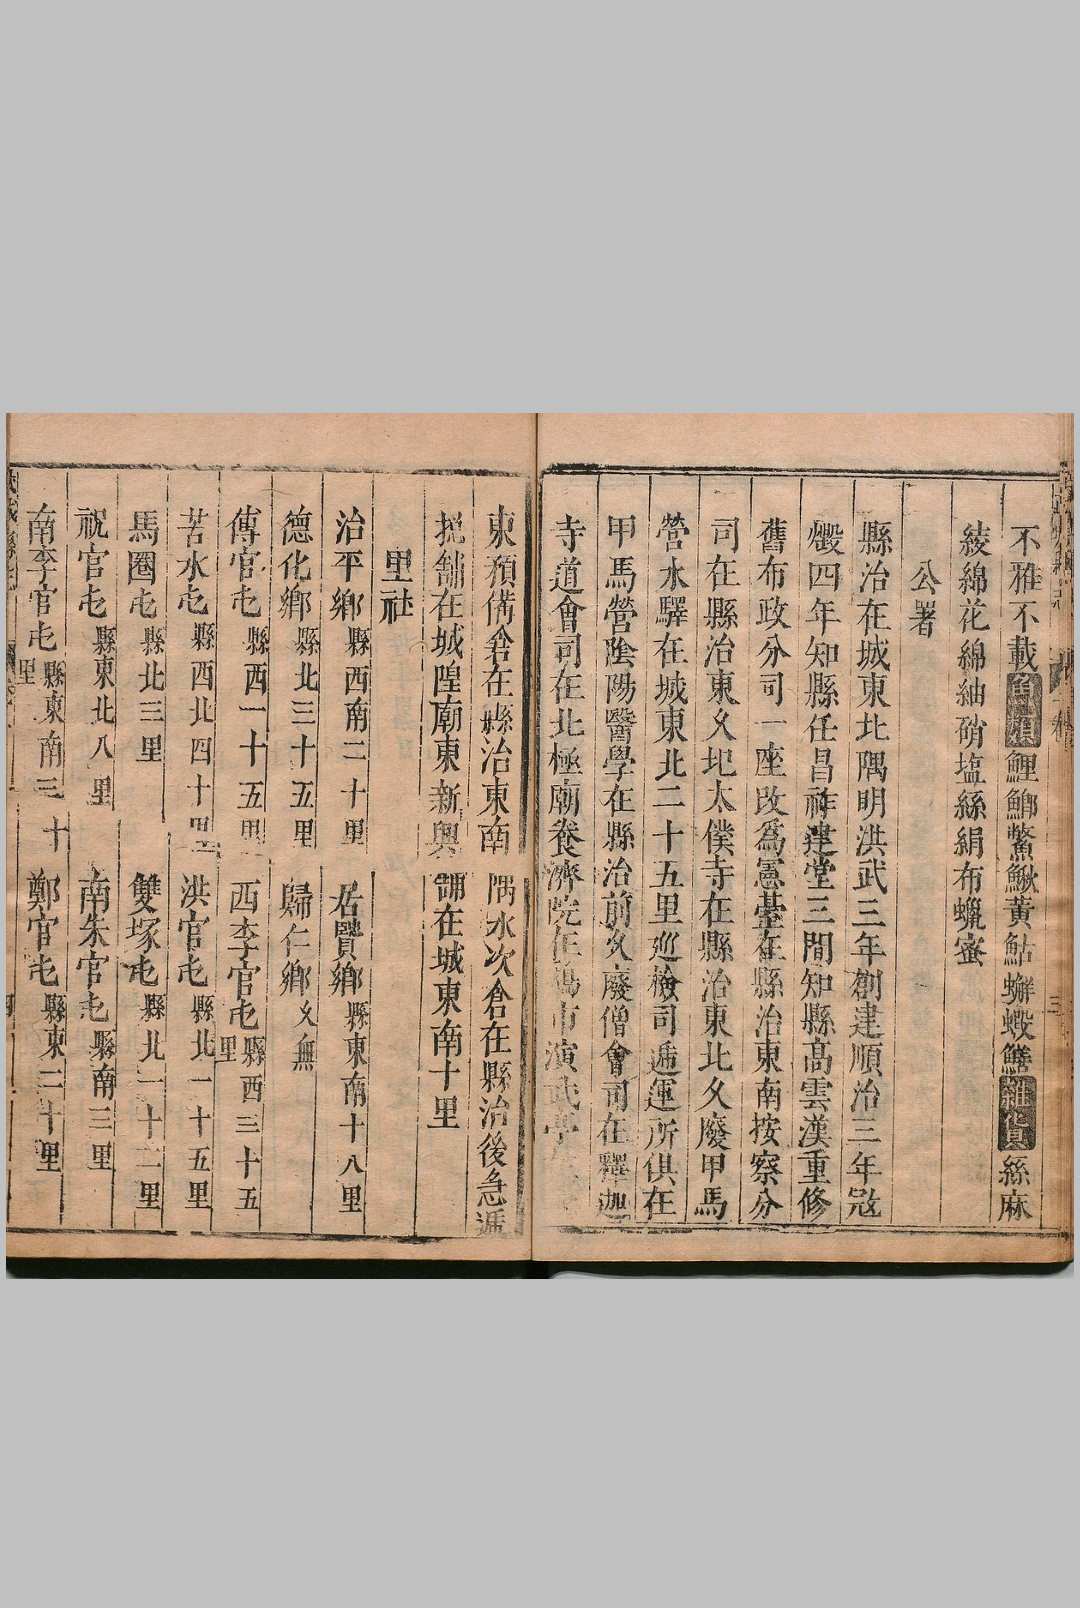 不雅不載魚類鯉鯽鱉鰍黃鮎蠏蝦鱔雜貨絲麻
綾綿花綿紬硝塩絲絹布蠟蜜
公署
縣治在城東北隅明洪武三年創建順治三年冦
燬四年知縣任昌祚建堂三間知縣高雲漢重修
舊布政分司一座改爲憲臺在縣治東南按察分
司在縣治東久圯太僕寺在縣治東北久廢甲馬
營水驛在城東北二十五里巡檢司遞運所俱在
甲馬營陰陽醫學在縣治前久廢僧會司在釋迦
寺道會司在北極廟養濟院在 市演武亭
東預備倉在縣治東南隅水次倉在縣治後急遞
捴舖在城隍廟東新興舖在城東南十里
里社
治平鄉縣西南二十里 居賢鄉縣東南十八里
德化鄉縣北三十五里 歸仁鄉久無
傳官屯縣西一十五里 西李官屯縣西三十五里
苦水屯縣西北四十里 洪官屯縣北一十五里
馬圈屯縣北三里 雙塚屯縣北一十二里
祝官屯縣東北八里 南朱官屯縣南三里
南李官屯縣東南三十里 鄭官屯縣東二十里